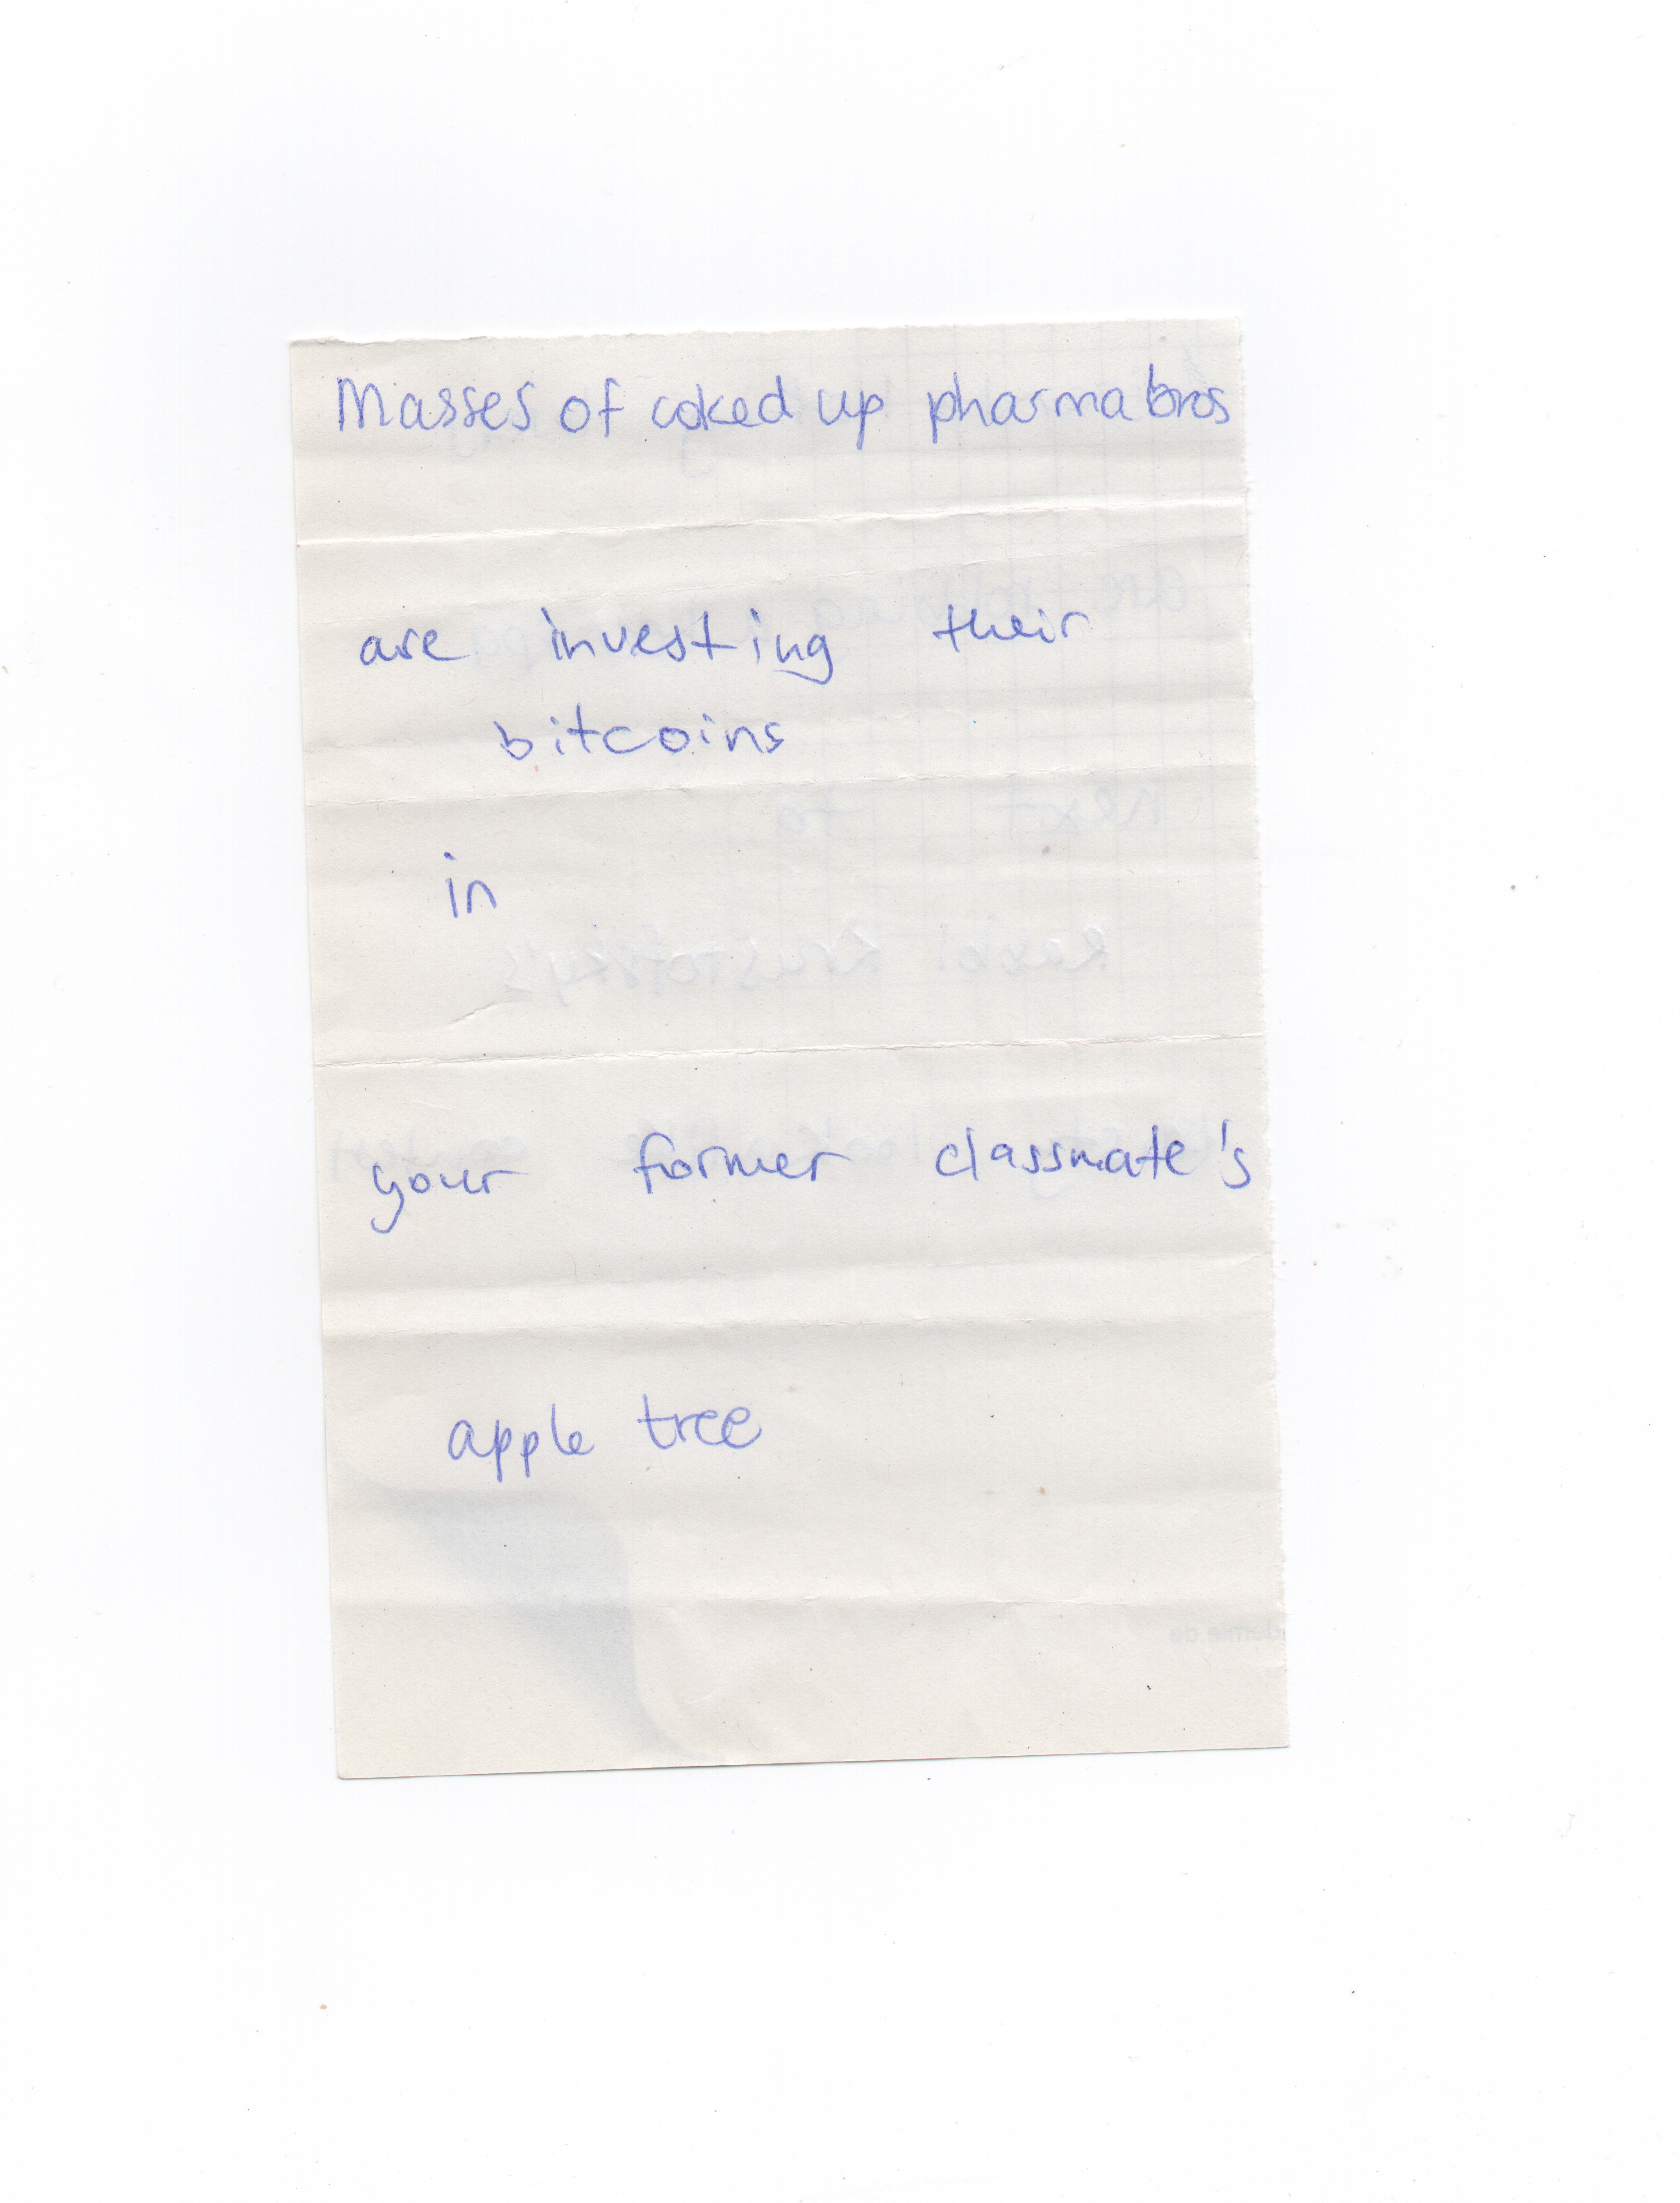 Masses of coked up pharma bros
are investing their
bitcoins
in
your former classmate's
apple tree